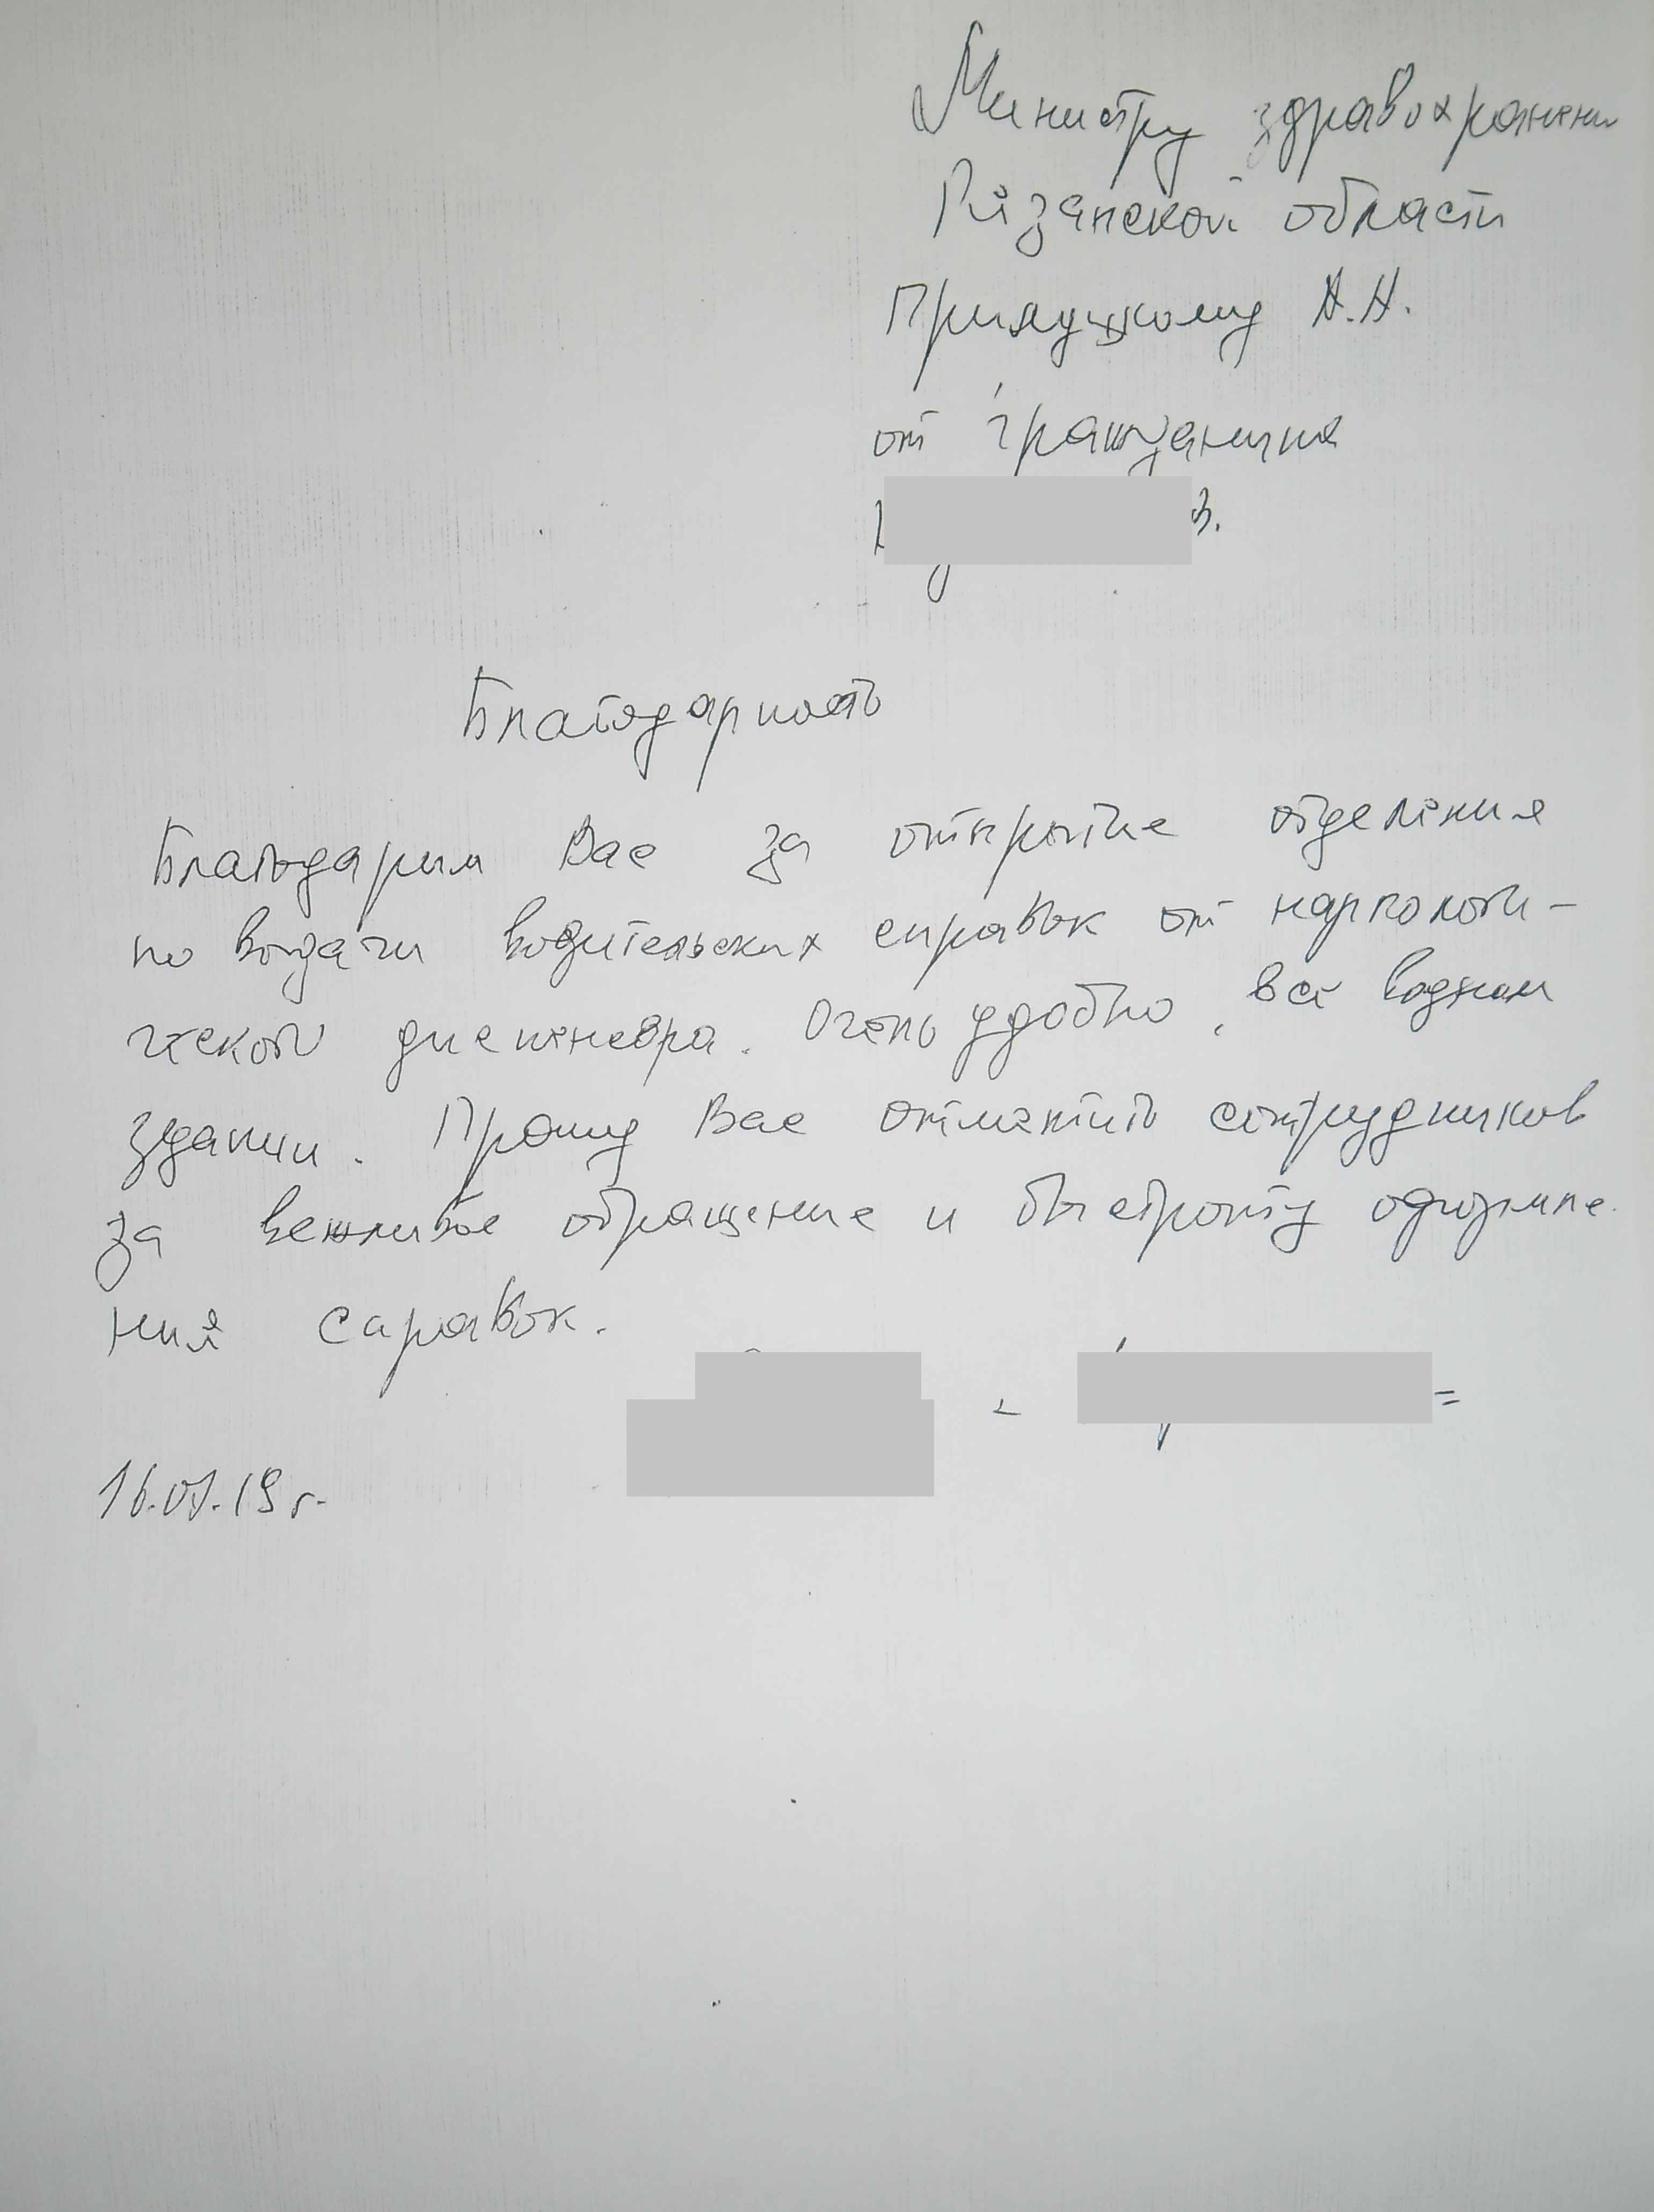 Министру здравохранени
Рязанской области
Прилуцкому А.Н.
от гражданина
В.
Благодарность
Благодарим Вас за открытие отделения
по выдачи водительских справок от наркологи-
ческой диспенсера. Очень удобно, всё водном
здании. Прошу Вас отметить сотрудников
за вежливое обращение и быстроту оформле-
ния справок.
16.01.19 г.